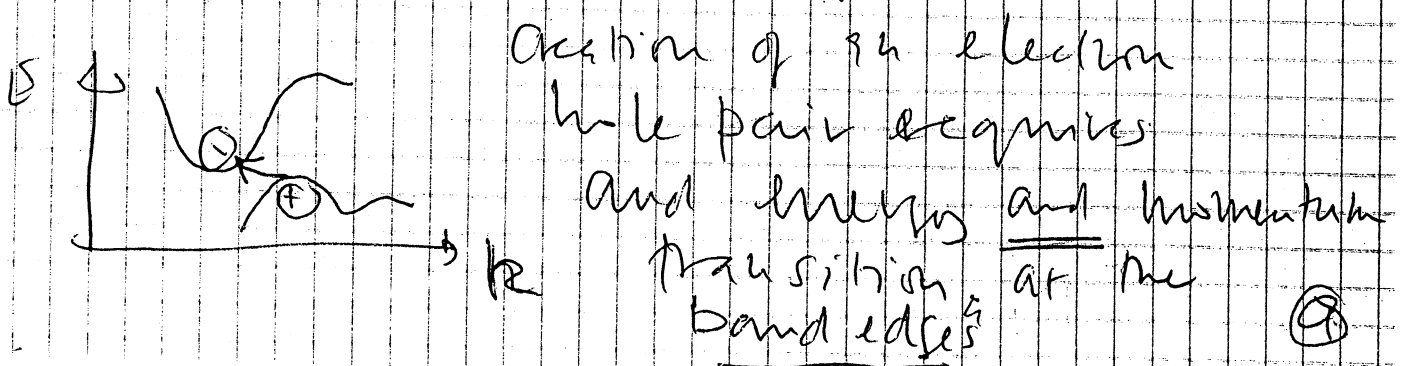 E
Creation of an electron
hole pair requires
and energy and momentum
k
transition at the
band edges
-
+
9